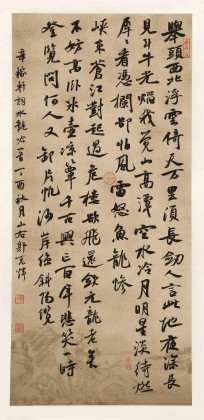 舉頭西北浮雲倚天萬里須長劍人言此地夜深長
見斗牛光焰我覺山高潭空水冷月明星淡待燃
犀下看憑欄卻怕風雷怒魚龍慘
峽束蒼江對起過危樓欲飛還斂元龍老矣
不妨高臥冰壺涼簟千古興亡百年悲笑一時
登覽問何人又卸片帆沙岸繫斜陽纜
辛稼軒詞水龍吟一首丁酉秋月山右郭